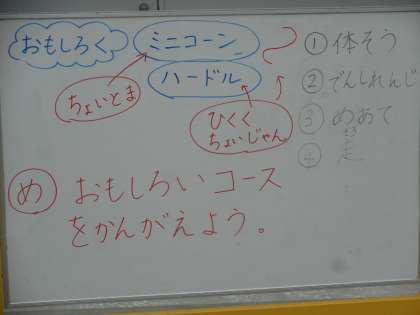 おもしろく
ミニコーン
ハードル
ちょいとま
ひくく
ちょいじゃん
① 体そう
② でんしれんじ
③ めあて
④ 走
め おもしろいコース
をかんがえよう。